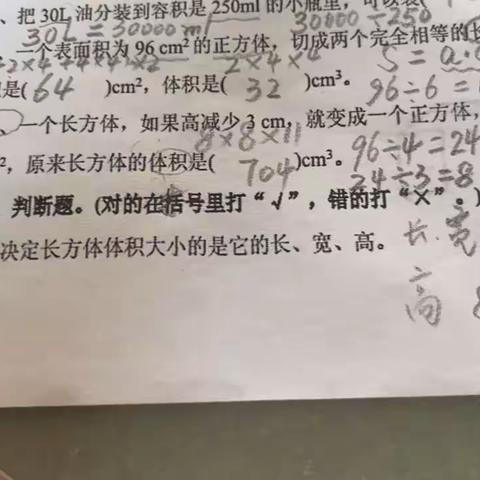 、把 30L 油分装到容积是 250ml 的小瓶里，可以装(
30L = 30000ml 30000÷250
一个表面积为 96 cm² 的正方体，切成两个完全相等的长
2×4×4 S=a·
是( 64 )cm²，体积是( 32 )cm³。 96÷6=
、一个长方体，如果高减少 3 cm，就变成一个正方体，
8×8×11
²，原来长方体的体积是( 704 )cm³。 96÷4=24
24÷3=8
判断题。(对的在括号里打“√”，错的打“×”。)
决定长方体体积大小的是它的长、宽、高。 长.宽
高